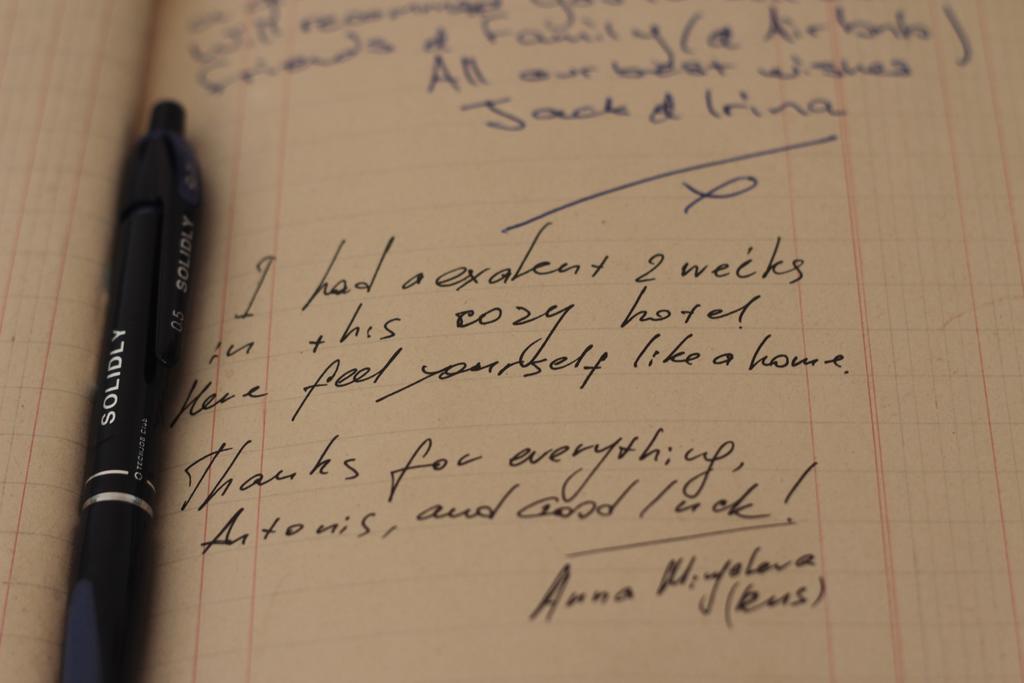 will recommend you to
friends & Family (& Airbnb)
All our best wishes
Jack & Irina
I had a exalent 2 weeks
in this cozy hotel
Here feel yourself like a home.
Thanks for everything,
Antonis, and Good luck!
Anna
(Rus)
SOLIDLY
0.5 SOLIDLY